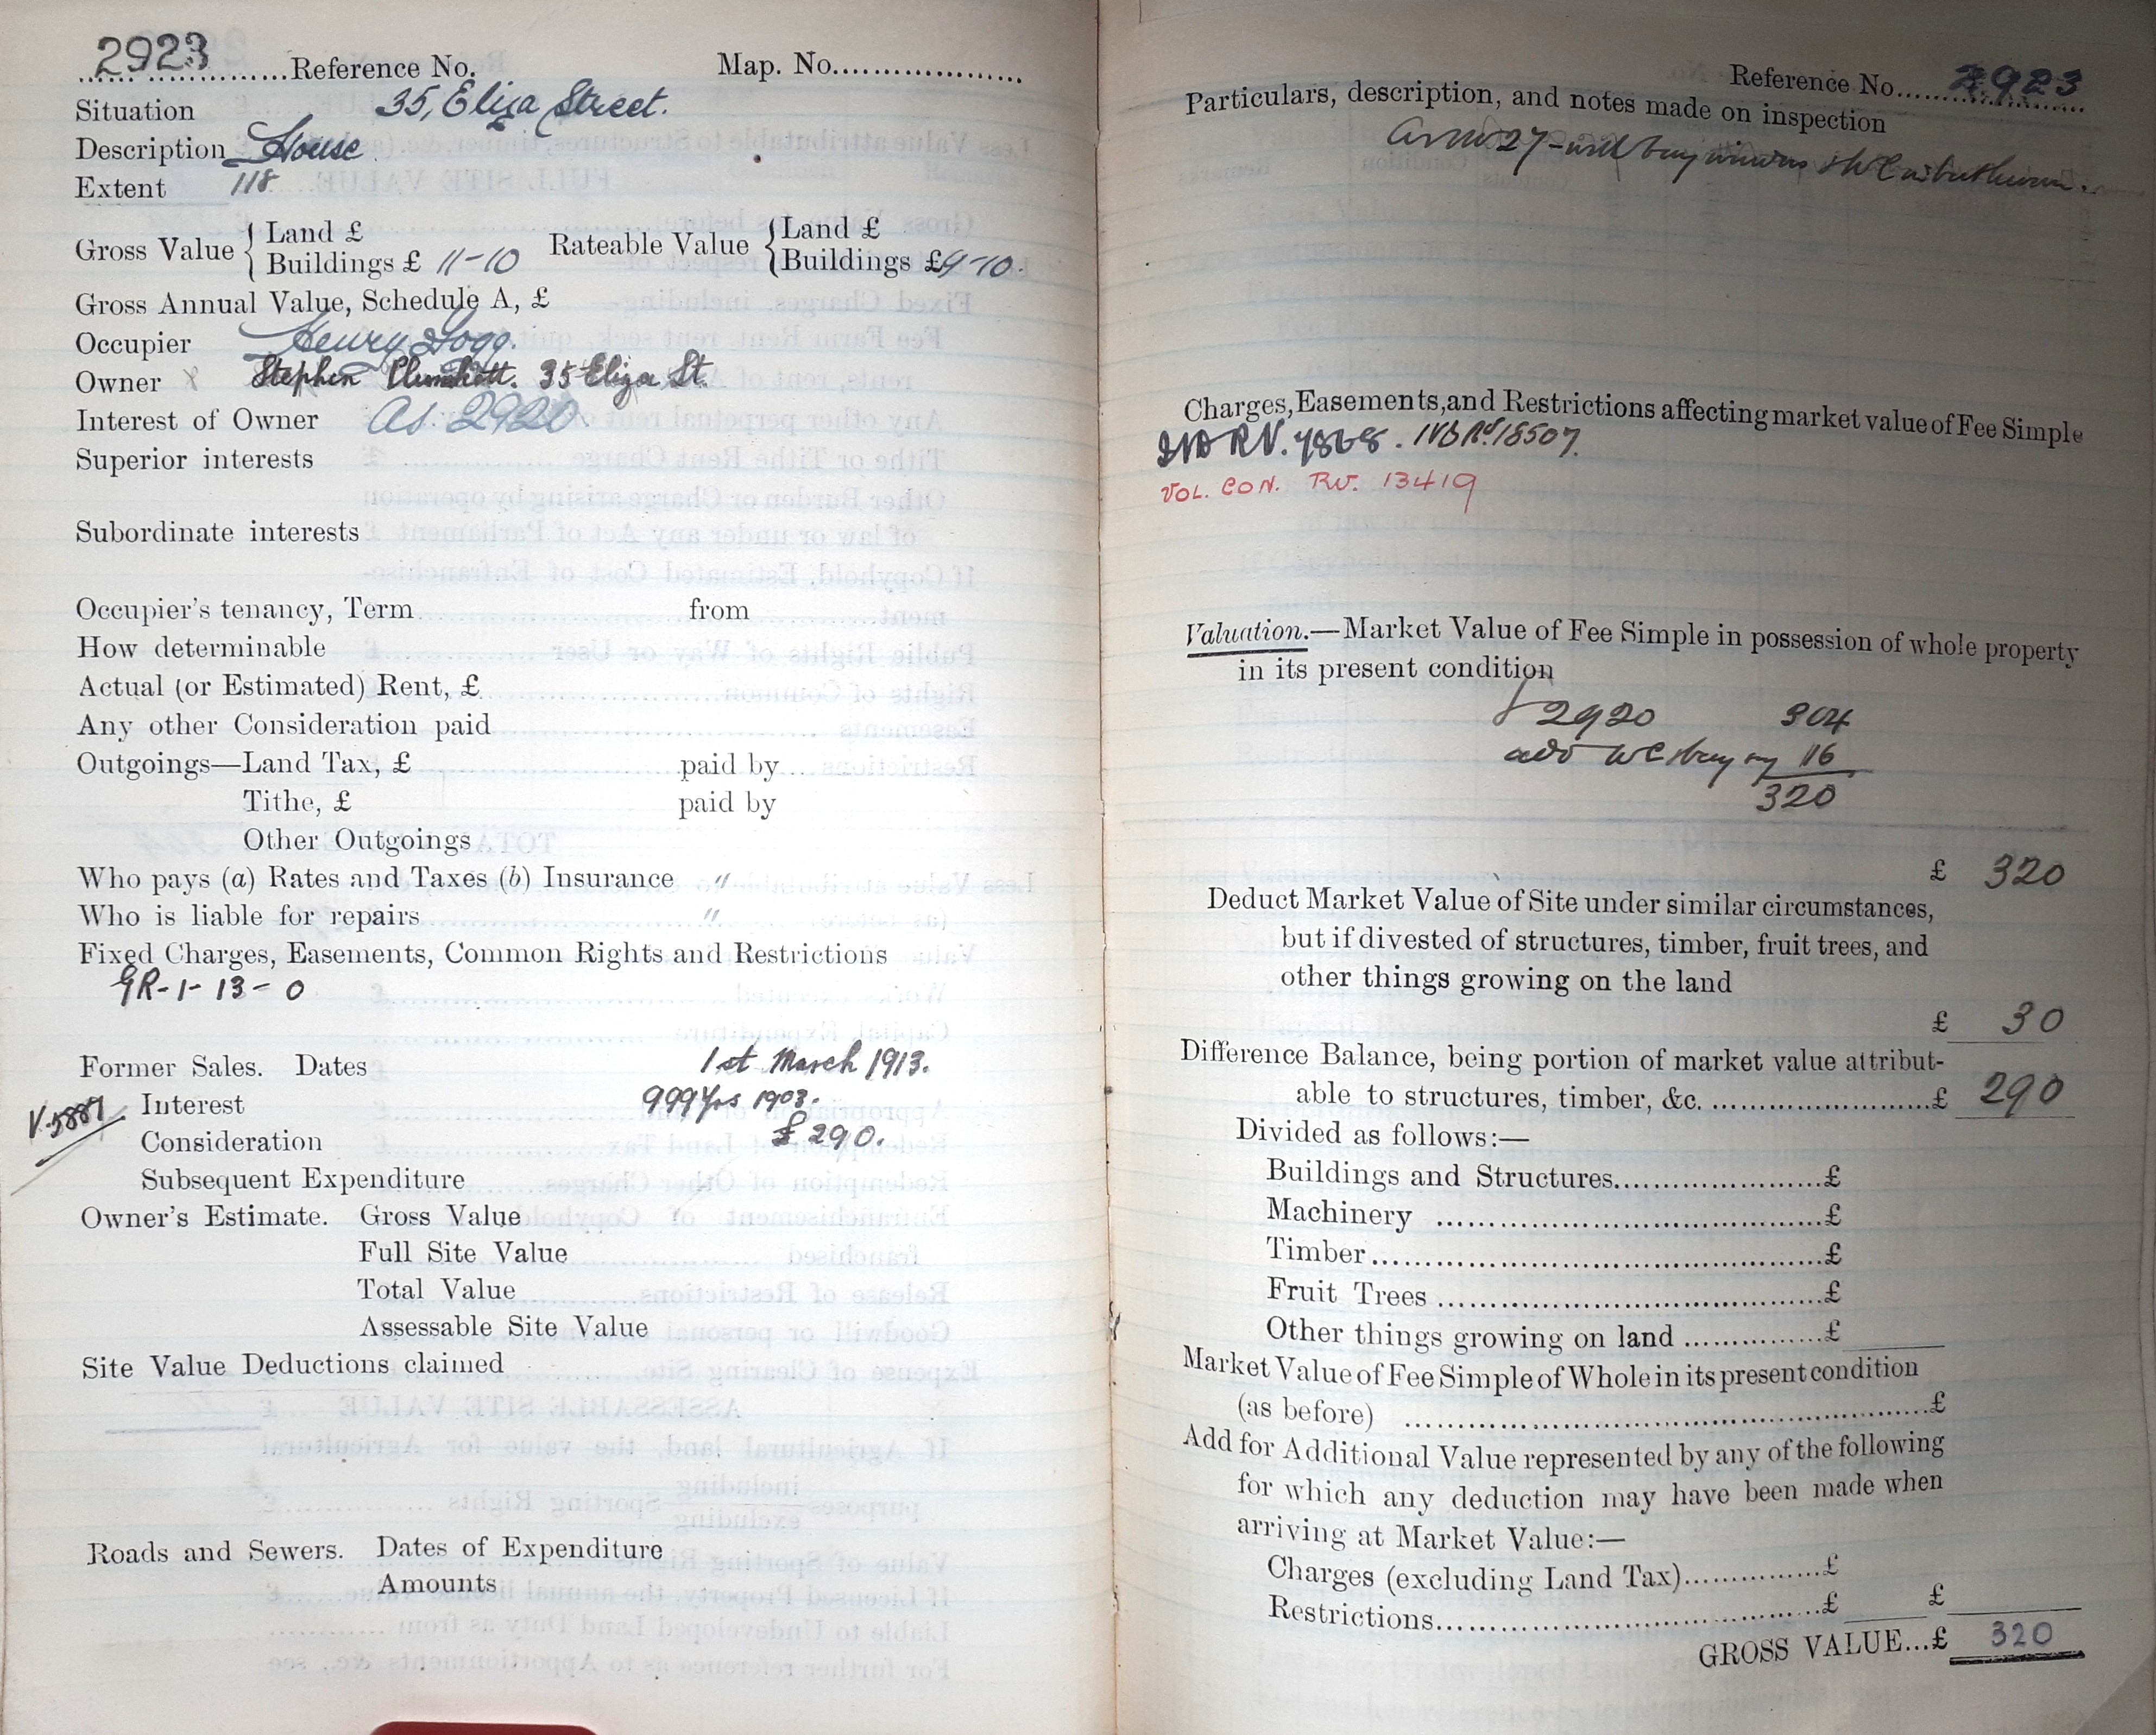 2923 Reference No. Map. No.
Situation 35, Eliza Street.
Description House
Extent 118
Gross Value { Land £ Rateable Value { Land £
Buildings £ 11-10 Buildings £ 9-10.
Gross Annual Value, Schedule A, £
Occupier Henry
Owner X Stephen 35 Eliza St.
Interest of Owner As. 2920
Superior interests
Subordinate interests
Occupier's tenancy, Term from
How determinable
Actual (or Estimated) Rent, £
Any other Consideration paid
Outgoings—Land Tax, £ paid by
Tithe, £ paid by
Other Outgoings
Who pays (a) Rates and Taxes (b) Insurance "
Who is liable for repairs "
Fixed Charges, Easements, Common Rights and Restrictions
GR-1-13-0
Former Sales. Dates 1st March 1913.
V.5887 Interest 999 Yrs 1903.
Consideration £290.
Subsequent Expenditure
Owner's Estimate. Gross Value
Full Site Value
Total Value
Assessable Site Value
Site Value Deductions claimed
Roads and Sewers. Dates of Expenditure
Amounts
Reference No. 2923
Particulars, description, and notes made on inspection
27 - with bay window & WC in bathroom.
Charges, Easements, and Restrictions affecting market value of Fee Simple
RV. IVB Rd 18507.
VOL. CON. RV. 13419
Valuation.—Market Value of Fee Simple in possession of whole property
in its present condition
2920 304
add WC bay 16
320
£ 320
Deduct Market Value of Site under similar circumstances,
but if divested of structures, timber, fruit trees, and
other things growing on the land
£ 30
Difference Balance, being portion of market value attribut-
able to structures, timber, &c. £ 290
Divided as follows:—
Buildings and Structures £
Machinery £
Timber £
Fruit Trees £
Other things growing on land £
Market Value of Fee Simple of Whole in its present condition
(as before) £
Add for Additional Value represented by any of the following
for which any deduction may have been made when
arriving at Market Value:—
Charges (excluding Land Tax) £
Restrictions £ £
GROSS VALUE...£ 320